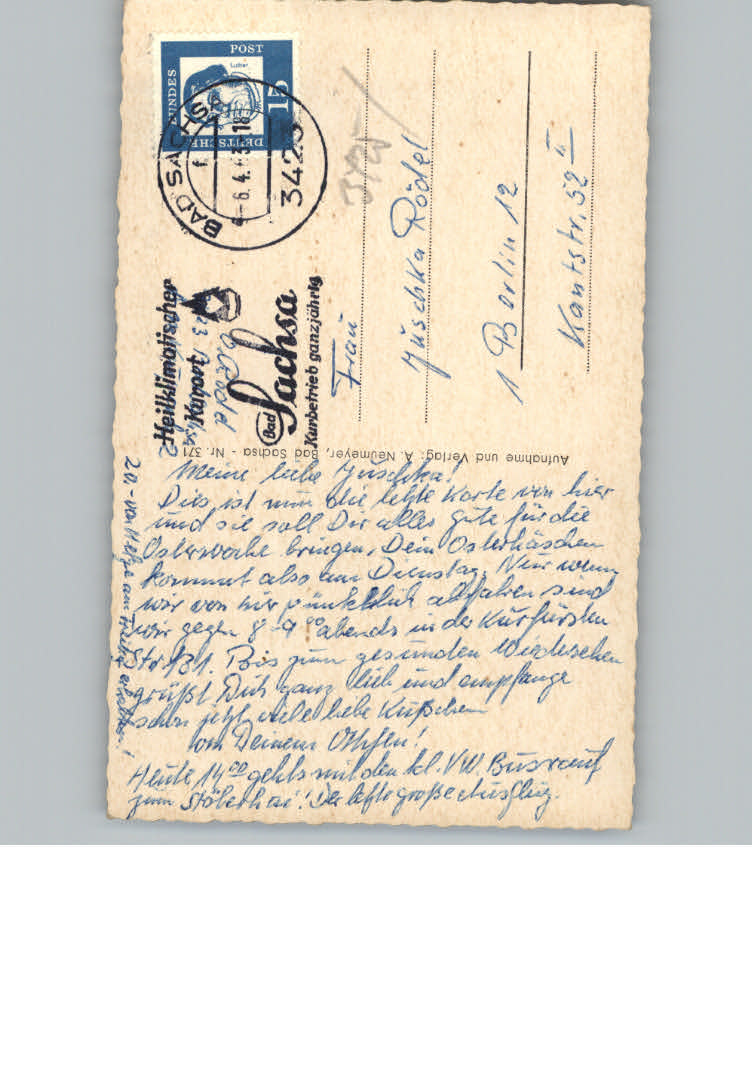 DEUTSCHE
BUNDES
POST
Luther
15
BAD SACHSA
3423
-6.4.63-18
f
Heilklimatischer
Kurort
Bad Sachsa
Kurbetrieb ganzjährig
O. Rödel
3423
3725/
Frau
Juschka Rödel
1 Berlin 12
Kantstr. 52 II
Aufnahme und Verlag: A. Neumeyer, Bad Sachsa - Nr. 371
Meine liebe Juschka!
Dies ist nun die letzte Karte von hier
und sie soll Dir alles gute für die
Osterwoche bringen. Dein Osterhäschen
kommt also am Dienstag. Nur wenn
wir von hier pünktlich abfahren sind
wir gegen 8-9⁰⁰ abends in der Kurfürsten
Str 131. Bis zum gesunden Wiedersehen
grüßt Dich ganz lieb und empfange
schon jetzt viele liebe Küßchen
von Deinem
Heute 14⁰⁰ gehts mit den kl. V.W. Bus rauf
zum Stöberhai! Der letzte große Ausflug.
20.- von Helga am